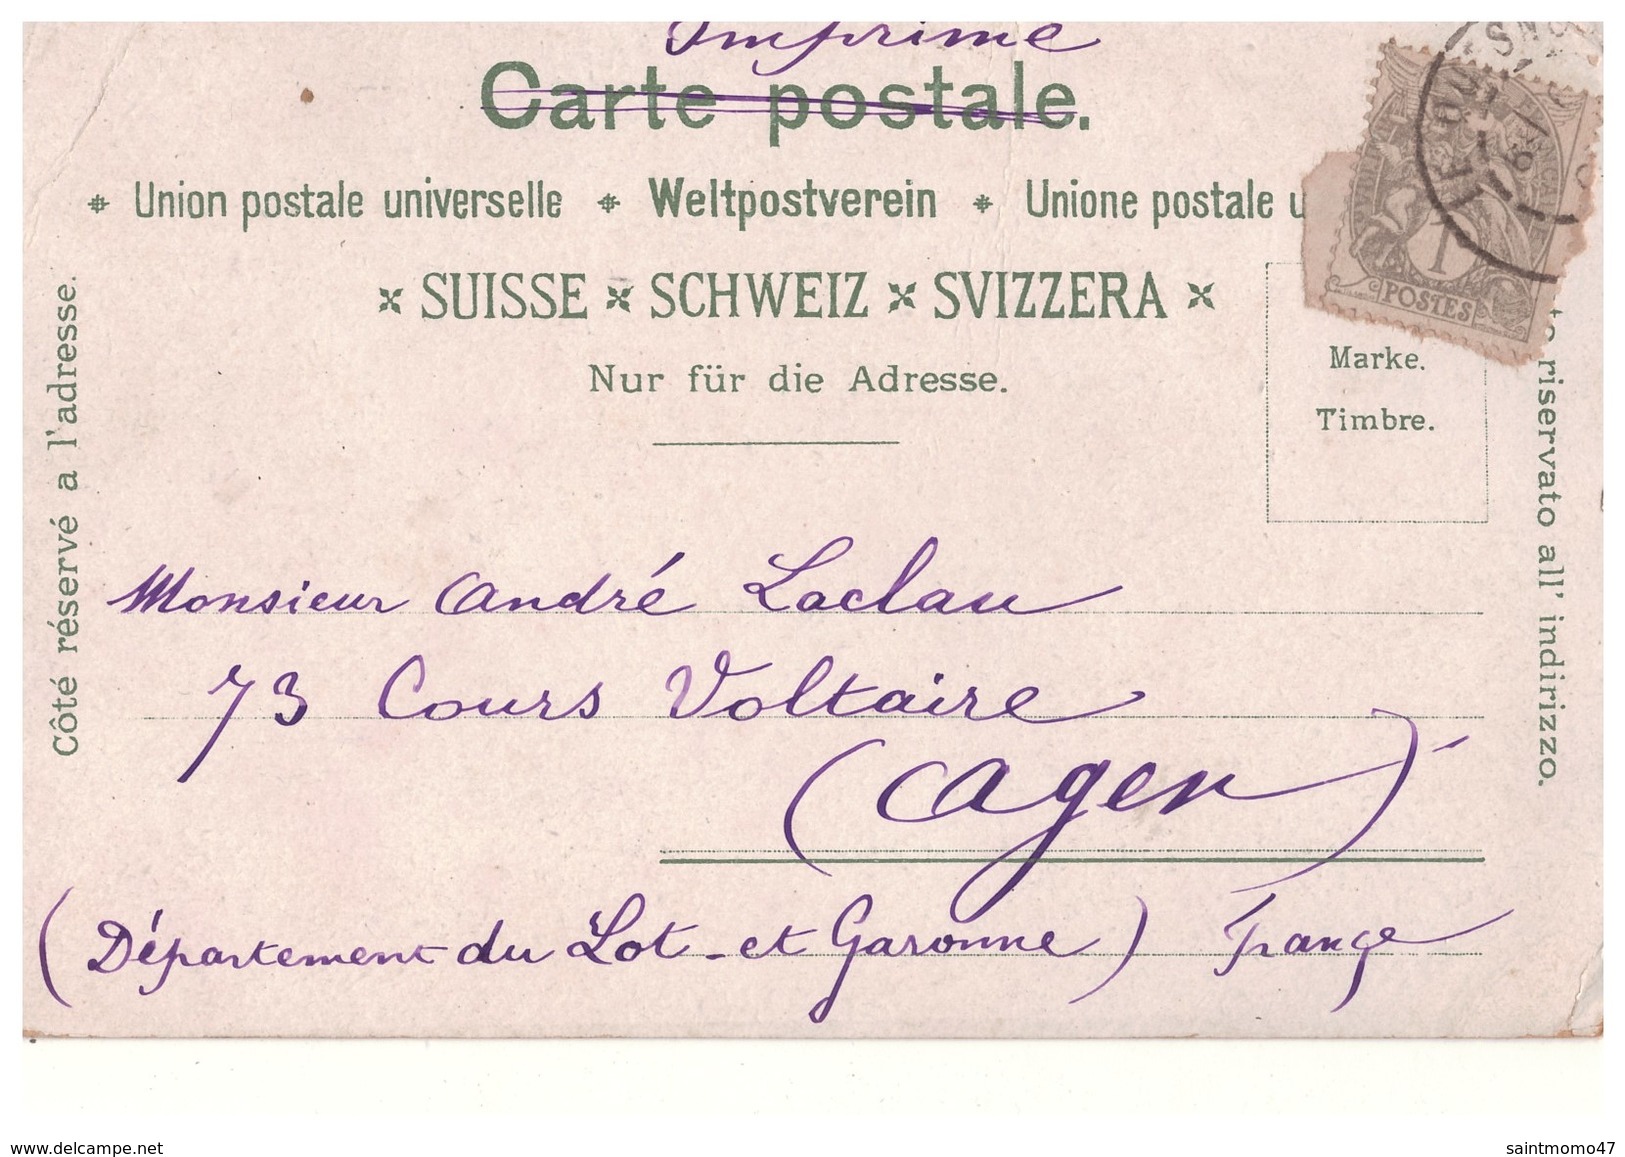 Imprimé
Carte postale.
Union postale universelle * Weltpostverein * Unione postale u
SUISSE × SCHWEIZ × SVIZZERA ×
Nur für die Adresse.
Côté réservé a l'adresse.
POSTES
1
Marke.
Timbre.
riservato all' indirizzo.
Monsieur André Laclau
73 Cours Voltaire
(Agen)
(Département du Lot-et Garonne) France
saintmomo47
www.delcampe.net